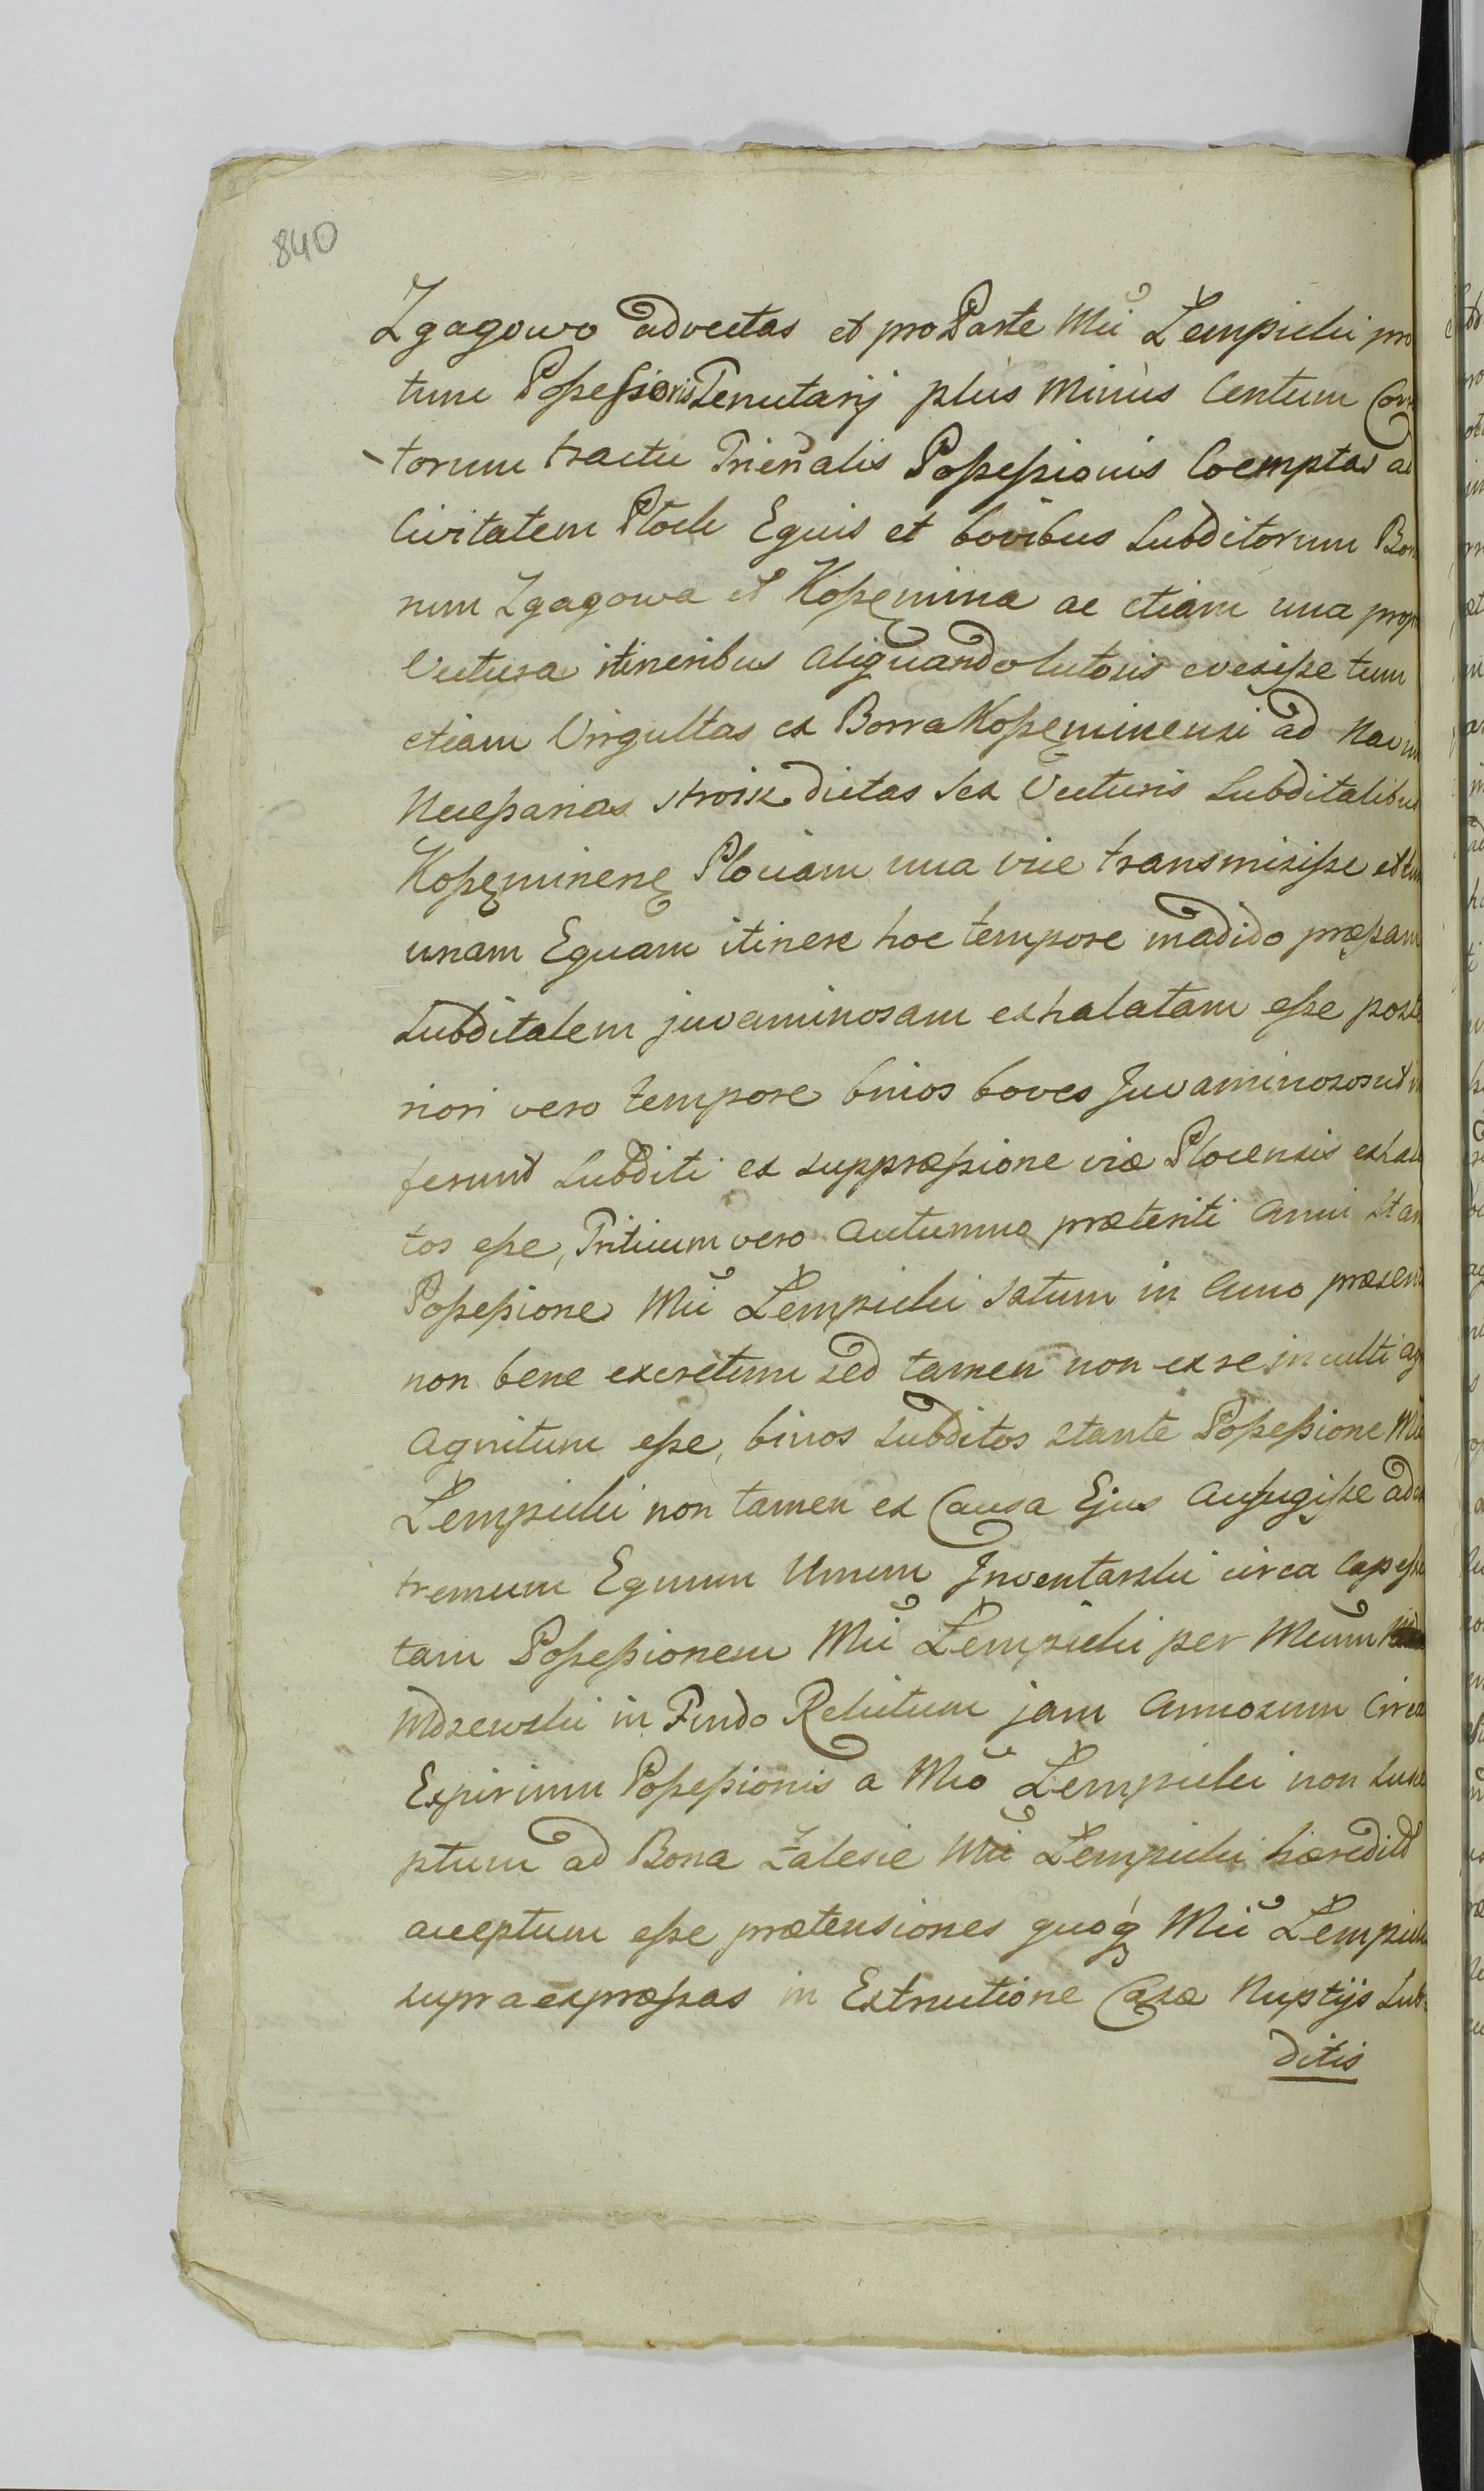 840
Zgagowo advectas et pro Parte Mci Lempicki pro
tunc Possessoris Tenutarij plus minus Centum Cor
torum tractu Trieñalis Possessionis Coemptas ad
Civitatem Plock Equis et bovibus Subditorum Bon
rum Zgagowa et Kossęmina ac etiam una
Vectura itineribus aliquando lutosis evexisse tum
etiam Virgultas ex Borra Kossęminensi ad
Necessarias stroisze dictas sex Vecturis Subditalibus
Kossęminenę Plociam una vice transmisisse et
unam Equam itinere hoc tempore madido
Subditalem juvaminosam exhalatam esse poste
riori vero tempore binos boves Juvaminosos ut
ferunt Subditi ex suppræssione viæ Plocensis exhala
tos esse, Triticum vero Autumno præteriti Anni stan
Possessione Mci Lempicki satum in Anno præsen
non bene excretum sed tamen non ex re inculti ag
Agnitum esse, binos Subditos stante Possessione Mci
Lempicki non tamen ex Causa Ejus Aufugisse adex
tremum Equum Unum Inventarski circa Capess
tam Possessionem Mci Lempicki per Mcum
Mdzewski in Fundo Relictum jam Annosum Circa
Expirium Possessionis a Mco Lempicki non susce
ptum ad Bona Zalesie Mci Lempicki hæredit
acceptum esse prætensiones quoq Mci Lempicki
supra expræssas in Extructione Casæ Nuptijs Sub-
ditis